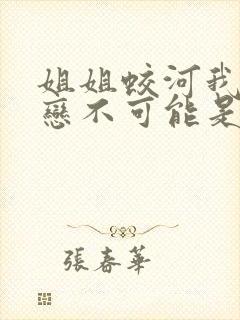 姐姐蛟河我
戀不可能是
張春華